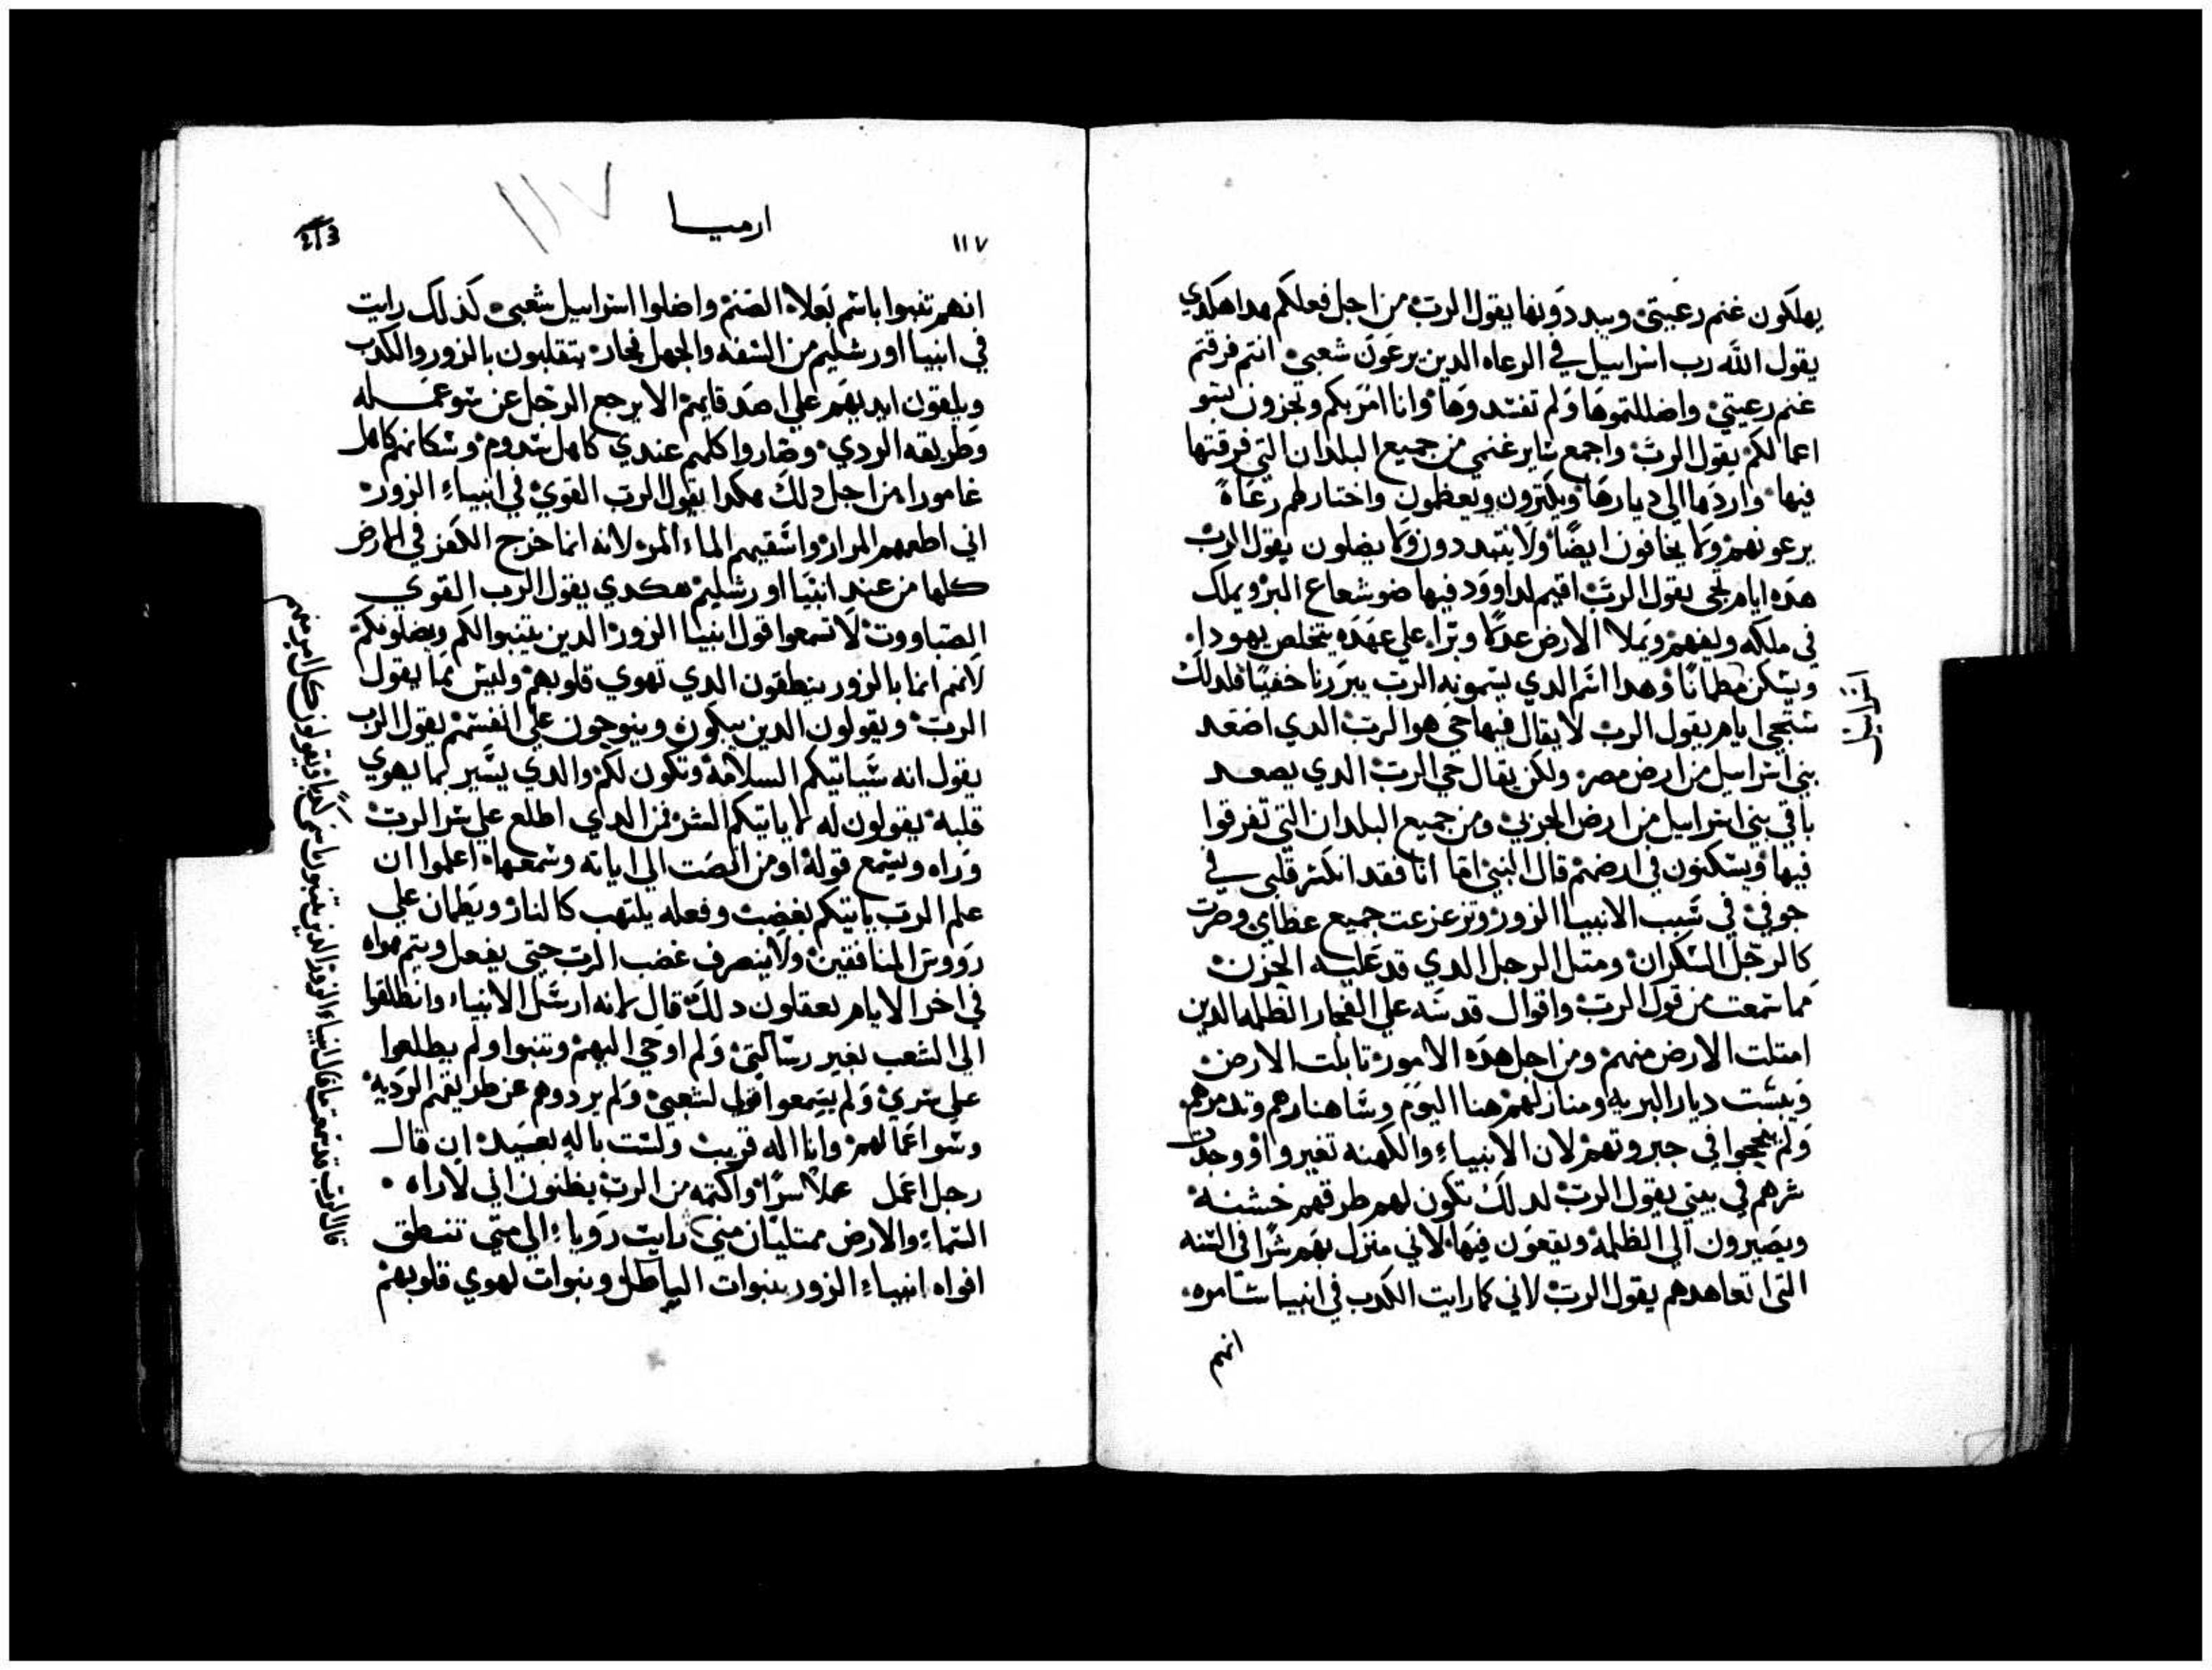 يهلكون غنم رعيتي ويبددونها يقول الرب من اجل فعلكم هدا هكدي
يقول الله رب اسراييل في الرعاه الدين يرعون شعبي انتم فرقتم
غنم رعيتي واضللتموها ولم تفتقدوها وانا امر بكم وتجزون بسو
اعمالكم يقول الرب واجمع ساير غنمي من جميع البلدان التي فرقتها
فيها واردها الي ديارها ويكترون ويعظمون واختار لهم رعاة
يرعونهم ولا يخافون ايضا ولا يتبددون ولا يضلون يقول الرب
هده ايام تجي يقول الرب اقيم لداوود فيها ضو شعاع البر ويملك
في ملكه ويفهم ويملا الارض عدلا وبرا علي عهده يتخلص يهودا
ويسكن مطمانا وهدا اسم الدي يسمونه الرب يبررنا خفيا فلدلك
اسراييل
ستجي ايام يقول الرب لا يقال فيها حي هو الرب الدي اصعد
بني اسراييل من ارض مصر ولكن يقال حي الرب الدي يصعد
باقي بني اسراييل من ارض الجربي ومن جميع البلدان التي تفرقوا
فيها ويسكنون في ارضهم قال النبي اما انا فقد انكسر قلبي في
جوفي في سبب الانبيا الزور وتزعزعت جميع عظامي وصرت
كالرجل السكران ومتل الرجل الدي قد غلبه الحزن
مما سمعت من قول الرب واقوال قدسه علي الفجار الظلمه الدين
امتلت الارض منهم ومن اجل هده الامور تابلت الارض
ويبست ديار البريه ومنازلهم هنا اليوم وساهنارهم وتدمرهم
ولم ينجحوا في جبروتهم لان الانبياء والكهنه تغيروا ووجدت
شرهم في بيتي يقول الرب لدلك تكون لهم طرقهم خشنة
ويصيرون الي الظلمة ويقعون فيها لاني منزل بهم شرا في السنه
التي اتعاهدهم يقول الرب لاني كما رايت الكدب في انبيا سامره
انهم
ارميا
١١٧
١١٧
انهم تنبوا باسم بعلا الصنم واضلوا اسراييل شعبي كذلك رايت
في انبيا اورشليم من السفه والجهل فجار يتقلبون بالزور والكدب
ويلقون ايديهم علي اصدقايهم الا يرجع الرجل عن سو عمله
وطريقه الردي وصاروا كلهم عندي كاهل سدوم وسكانهم كاهل
غامورا من اجل دلك هكدا يقول الرب القوي في انبياء الزور
اني اطعمهم المرار واسقيهم الماء المر لانه انما خرج الكفر في الارض
كلها من عند انبيا اورشليم هكدي يقول الرب القوي
الصباووت لا تسمعوا قول انبيا الزور الدين يتنبوا لكم ويضلونكم
لانهم انما بالزور ينطقون الدي تهوي قلوبهم وليس مما يقول
الرب ويقولون الدين يبكون وينوحون علي انفسهم يقول الرب
يقول انه سياتيكم السلامة وتكون لكم والدي يسير كما يهوي
قلبه يقولون له لا ياتيكم الشر فمن الدي اطلع علي سر الرب
وراه وسمع قوله او من انصت الي اياته وسمعها اعلموا ان
علم الرب ياتيكم بغضب وفعله يلتهب كالنار ويطمان علي
رووس المنافقين ولا ينصرف غضب الرب حتي يفعل ويتم هواه
في اخر الايام تعقلون دلك قال لانه ارسل الانبياء وانطلقوا
الي الشعب بغير رسالتي ولم اوحي اليهم وتنبوا ولم يطلعوا
علي سري ولم يسمعوا قولي لشعبي ولم يردوهم عن طريقهم الرديه
وسوا عمالهم وانا اله قريب ولست باله بعيد ان قال
رجل اعمل عملا سرا واكتمه من الرب يظنون اني لا اراه
السماء والارض ممتليان مني رايت روياء الي متي تنطق
افواه انبياء الزور بنبوات الباطل وبنبوات لهوي قلوبهم
قال الرب قد سمعت ما قال انبياء الزور الدين يتنبون باسمي كدبا ويقولون كل امر منهم